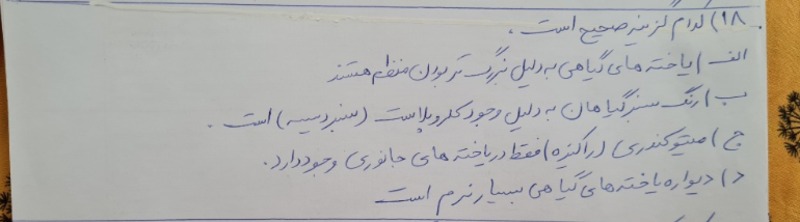 ۱۸) کدام گزینه صحیح است.
الف) یاخته های گیاهی به دلیل بزرگ تر بودن منظم هستند
ب) رنگ سبز گیاهان به دلیل وجود کلروپلاست (سبزدیسه) است.
ج) میتوکندری (راکیزه) فقط در یاخته های جانوری وجود دارد.
د) دیواره یاخته های گیاهی بسیار نرم است